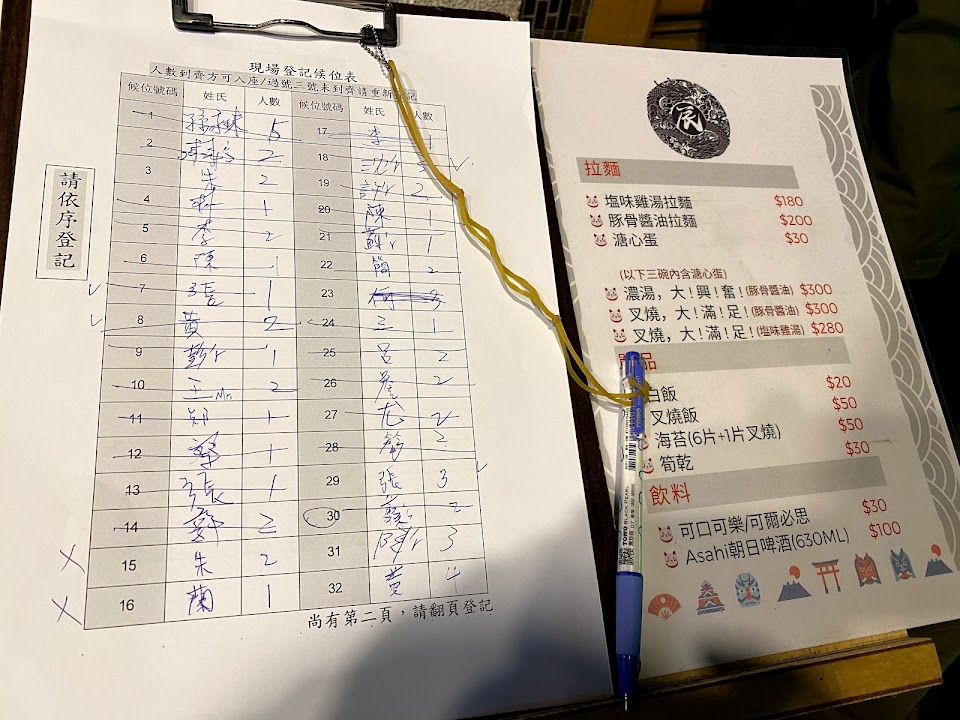 現場登記候位表
人數到齊方可入座/過號三號未到齊請重新 記
候位號碼 姓氏 人數 候位號碼 姓氏 人數
請依序登記
1 5 17 李 1
2 2 18
3 朱 2 19 許 2
4 林 1 20 陳 1
5 李 2 21 蘇 1
6 陳 1 22 簡 2
7 張 1 23
8 黃 2 24 王 1
9 彭 1 25 呂 2
10 王 Mr. 2 26 詹 2
11 1 27 尤 2
12 1 28 2
13 張 1 29 張 3
14 2 30 2
15 朱 2 31 陳 3
16 蘭 1 32 黃 4
尚有第二頁，請翻頁登記
辰
拉麵
塩味雞湯拉麵 $180
豚骨醬油拉麵 $200
溏心蛋 $30
(以下三碗內含溏心蛋)
濃湯，大!興!奮!(豚骨醬油) $300
叉燒，大!滿!足!(豚骨醬油) $300
叉燒，大!滿!足!(塩味雞湯) $280
品
白飯 $20
叉燒飯 $50
海苔(6片+1片叉燒) $50
筍乾 $30
飲料
可口可樂/可爾必思 $30
Asahi朝日啤酒(630ML) $100